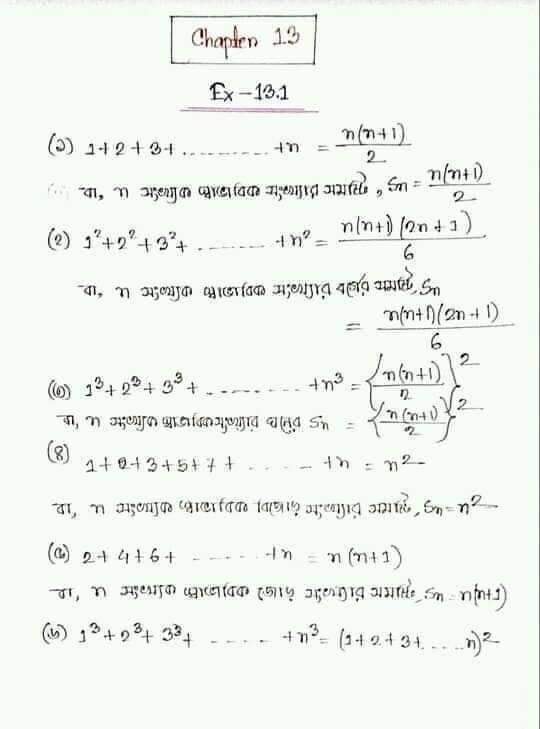 Chapter 13
Ex – 13.1
(১) 1+2+3+ .......... +n = n(n+1)/2
বা, n সংখ্যক স্বাভাবিক সংখ্যার সমষ্টি, Sn = n(n+1)/2
(২) 1²+2²+3²+ ........ +n² = n(n+1)(2n+1)/6
বা, n সংখ্যক স্বাভাবিক সংখ্যার বর্গের সমষ্টি, Sn
= n(n+1)(2n+1)/6
(৩) 1³+2³+3³+ .......... +n³ = {n(n+1)/2}²
বা, n সংখ্যক স্বাভাবিক সংখ্যার ঘনের Sn = {n(n+1)/2}²
(৪)
1+2+3+5+7+ ..... +n = n²
বা, n সংখ্যক স্বাভাবিক বিজোড় সংখ্যার সমষ্টি, Sn = n²
(৫) 2+4+6+ ...... +n = n(n+1)
বা, n সংখ্যক স্বাভাবিক জোড় সংখ্যার সমষ্টি, Sn = n(n+1)
(৬) 1³+2³+3³+ ..... +n³ = (1+2+3+.....n)²